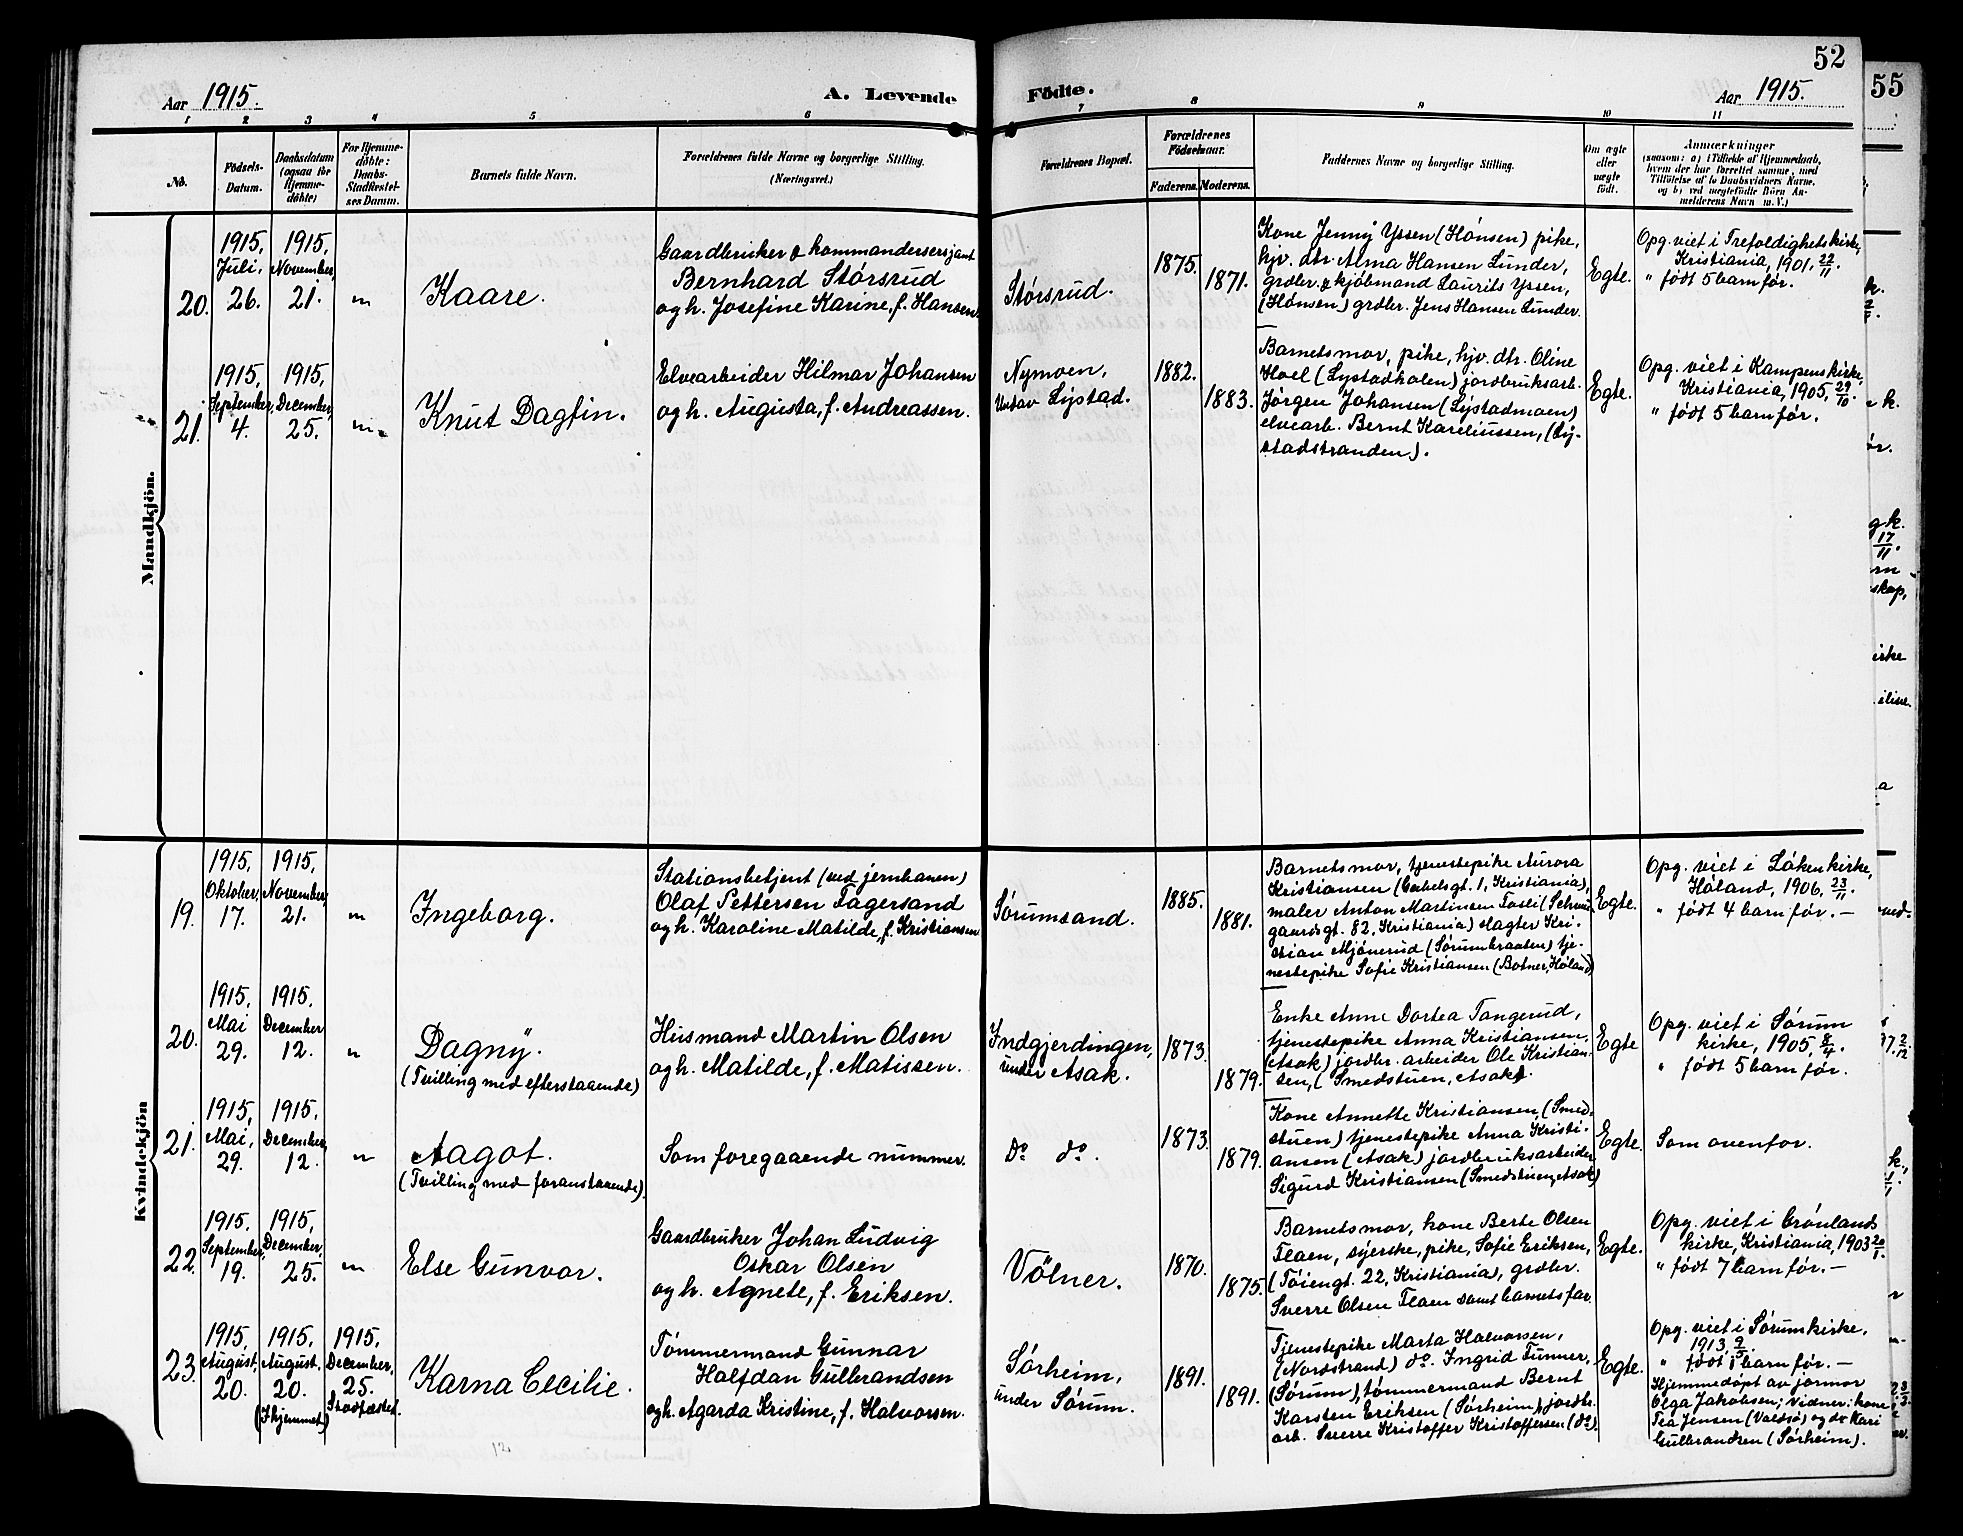 52
55
Aar 1915.
A. Levende
Fødte.
Aar 1915.
1 2 3 4 5 6 7 8 9 10 11
No.
Fødsels-
Datum.
Daabsdatum
(ogsaa for
Hjemme-
døbte)
For Hjemme-
døbte:
Daabs-
Stadfæstel-
ses Datum.
Barnets fulde Navn.
Forældrenes fulde Navne og borgerlige Stilling.
(Næringsvei.)
Forældrenes Bopæl.
Forældrenes
Fødselsaar.
Faderens.
Moderens.
Faddernes Navne og borgerlige Stilling.
Om ægte
eller
uægte
født.
Anmærkninger
(saasom: a) i Tilfælde af Hjemmedaab,
hvem der har forrettet samme, med
Tilføielse af to Daabsvidners Navne,
og b) ved uægtefødte Børn An-
melderens Navn m. V.)
Mandkjön.
20.
1915,
Juli,
26.
1915,
November,
21.
"
Kaare.
Gaardbruker & kommandersersjant
Bernhard Störsrud
og h. Josefine Karine, f. Hansen.
Störsrud.
1875.
1871.
Kone Jenny Yssen (Hónsen) pike,
hjv. dtr. Alma Hansen Lunder,
grdbr. & kjöbmand Laurits Yssen,
(Hónsen) grdbr. Jens Hansen Lunder.
Egte.
Opg. viet i Trefoldighetskirke,
Kristiania, 1901, 22/11.
" födt 5 barn før.
21.
1915,
September,
4.
1915,
December,
25.
"
Knut Dagfin.
Elvearbeider Hilmar Johansen
og h. Augusta, f. Andreassen.
Nymoen,
under Lystad.
1882.
1883.
Barnets mor, pike, hjv. dtr. Oline
Hoel (Lystadholen) jordbruksarb.
Jörgen Johansen (Lystadmoen)
elvearb. Bernt Kareliussen, (Ly-
stadstranden).
Egte.
Opg. viet i Kampens kirke,
Kristiania, 1905, 29/10
" födt 5 barn før.
Kvindekjön
19.
1915,
Oktober,
17.
1915,
November,
21.
"
Ingeborg.
Stationsbetjent (ved jernbanen)
Olaf Pettersen Fagersand
og h. Karoline Matilde, f. Kristiansen
Sörumsand.
1885.
1881.
Barnets mor, tjenestepike Aurora
Kristiansen ( 1, Kristiania),
maler Anton Martinsen Fosli (Schwei-
gaardsgt. 82, Kristiania) slagter Kri-
stian Mjónerud (Sörumbraaten) tje-
nestepike Sofie Kristiansen (Botner, Höland)
Egte.
Opg. viet i Löken kirke,
Höland, 1906, 23/11.
" födt 4 barn før. —
20.
1915,
Mai
29.
1915.
December
12.
"
Dagny.
(Tvilling med efterstaaende)
Husmand Martin Olsen
og h. Matilde, f. Matissen.
Indgjerdingen,
under Asak.
1873.
1879.
Enke Anne Dortea Tangerud,
tjenestepike Anna Kristiansen,
(Asak) jordbr. arbeider Ole Kristian-
sen, (Smedstuen, Asak).
Egte
Opg. viet i Sörum
kirke, 1905, 8/4.
" födt 5 barn før.
21.
1915,
Mai,
29.
1915.
December,
12.
"
Aagot.
(Tvilling med foranstaaende).
Som foregaaende nummer.
Do do.
1873.
1879.
Kone Annette Kristiansen, (Smed-
stuen) tjenestepike Anna Kristi-
ansen (Asak) jordbruksarbeider
Sigurd Kristiansen (Smedstuen, Asak)
Egte.
Som ovenfor.
22.
1915.
September,
19.
1915,
December,
25.
"
Else Gunvor.
Gaardbruker Johan Ludvig
Oskar Olsen
og h. Agnete, f. Eriksen.
Völner.
1870.
1875.
Barnets mor, kone Berte Olsen
Flaen, syerske, pike, Sofie Eriksen,
(Töiengt. 22, Kristiania), grdbr.
Sverre Olsen Flaen samt barnets far.
Egte.
Opg. viet i Grönlands
kirke, Kristiania, 1903 20/1.
" födt 7 barn før. —
23.
1915.
August,
20.
1915.
August.
20.
(I hjemmet)
1915.
December,
25.
Stadfæstet.
Karna Cecilie.
Tømmermand Gunnar
Halfdan Gulbrandsen
og h. Agarda Kristine, f. Halvorsen.
Sörheim,
under Sörum.
1891.
1891.
Tjenestepike Marta Halvorsen,
(Nordstrand) do. Ingrid Tunner,
(Sörum), tømmermand Bernt
Karsten Eriksen (Sörheim), jordbr.
arb. Sverre Kristoffer Kristoffersen (do).
Egte.
Opg. viet i Sörum kirke,
1913, 9/3.
" födt 1 barn før. —
Hjemmedöpt av jormor
Olga Jakobsen; vidner: kone
Tea Jensen (Valdsö) og do Kari
Gulbrandsen (Sörheim).